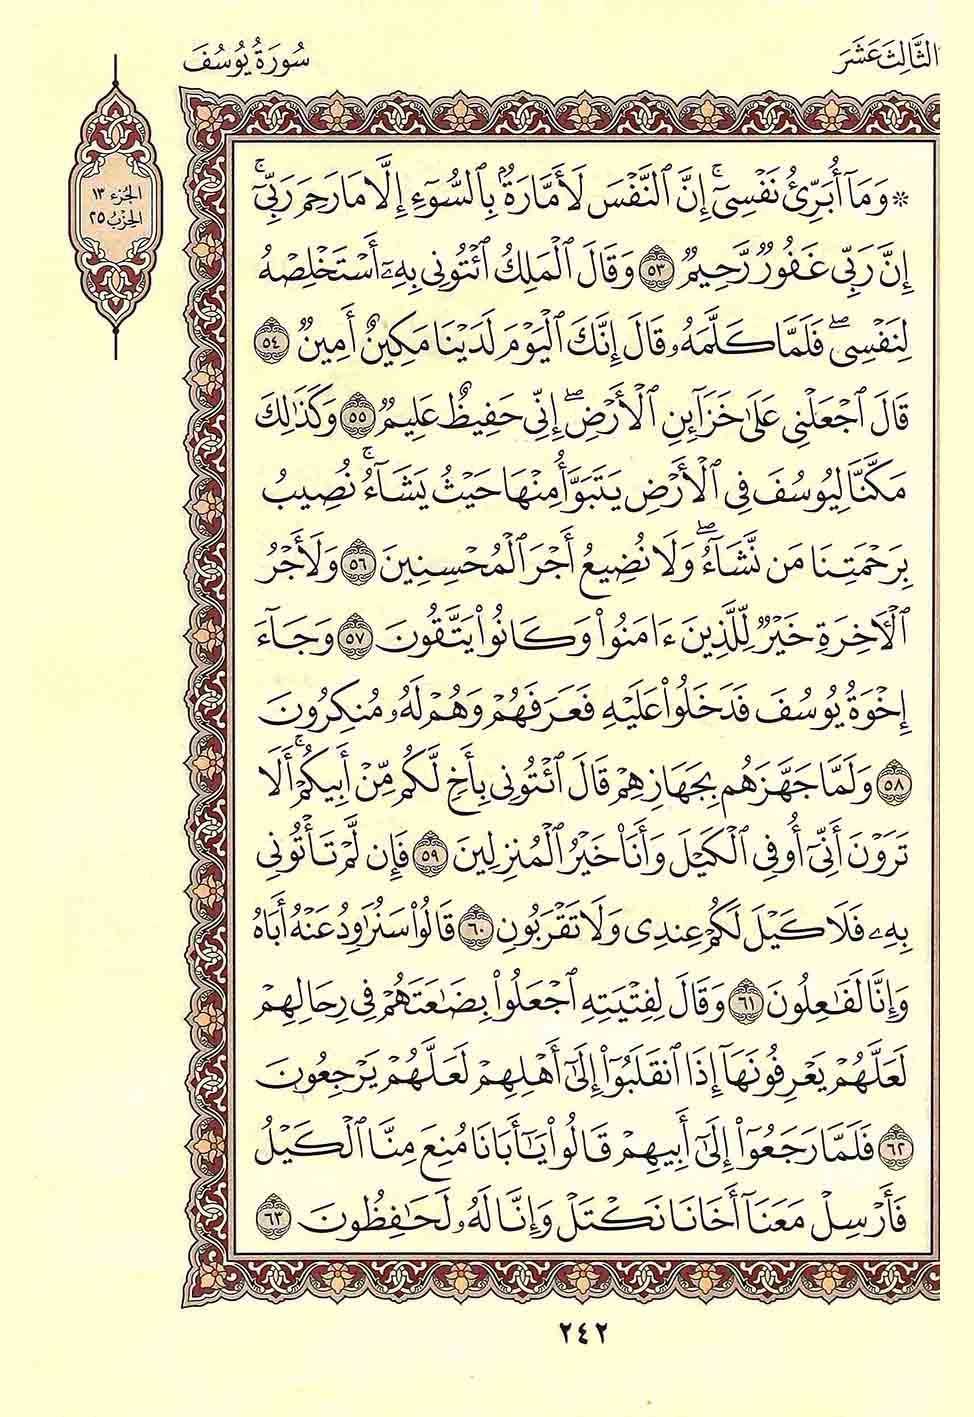 الثَّالِثَ عَشَرَ
سُورَةُ يُوسُفَ
الجُزْء ١٣
الحِزْبُ ٢٥
۞ وَمَآ أُبَرِّئُ نَفْسِىٓۚ إِنَّ ٱلنَّفْسَ لَأَمَّارَةٌۢ بِٱلسُّوٓءِ إِلَّا مَا رَحِمَ رَبِّىٓۚ
إِنَّ رَبِّى غَفُورٌ رَّحِيمٌ ٥٣ وَقَالَ ٱلْمَلِكُ ٱئْتُونِى بِهِۦٓ أَسْتَخْلِصْهُ
لِنَفْسِىۖ فَلَمَّا كَلَّمَهُۥ قَالَ إِنَّكَ ٱلْيَوْمَ لَدَيْنَا مَكِينٌ أَمِينٌ ٥٤
قَالَ ٱجْعَلْنِى عَلَىٰ خَزَآئِنِ ٱلْأَرْضِۖ إِنِّى حَفِيظٌ عَلِيمٌ ٥٥ وَكَذَٰلِكَ
مَكَّنَّا لِيُوسُفَ فِى ٱلْأَرْضِ يَتَبَوَّأُ مِنْهَا حَيْثُ يَشَآءُۚ نُصِيبُ
بِرَحْمَتِنَا مَن نَّشَآءُۖ وَلَا نُضِيعُ أَجْرَ ٱلْمُحْسِنِينَ ٥٦ وَلَأَجْرُ
ٱلْءَاخِرَةِ خَيْرٌ لِّلَّذِينَ ءَامَنُوا۟ وَكَانُوا۟ يَتَّقُونَ ٥٧ وَجَآءَ
إِخْوَةُ يُوسُفَ فَدَخَلُوا۟ عَلَيْهِ فَعَرَفَهُمْ وَهُمْ لَهُۥ مُنكِرُونَ
٥٨ وَلَمَّا جَهَّزَهُم بِجَهَازِهِمْ قَالَ ٱئْتُونِى بِأَخٍ لَّكُم مِّنْ أَبِيكُمْۚ أَلَا
تَرَوْنَ أَنِّىٓ أُوفِى ٱلْكَيْلَ وَأَنَا۠ خَيْرُ ٱلْمُنزِلِينَ ٥٩ فَإِن لَّمْ تَأْتُونِى
بِهِۦ فَلَا كَيْلَ لَكُمْ عِندِى وَلَا تَقْرَبُونِ ٦٠ قَالُوا۟ سَنُرَٰوِدُ عَنْهُ أَبَاهُ
وَإِنَّا لَفَٰعِلُونَ ٦١ وَقَالَ لِفِتْيَٰنِهِ ٱجْعَلُوا۟ بِضَٰعَتَهُمْ فِى رِحَالِهِمْ
لَعَلَّهُمْ يَعْرِفُونَهَآ إِذَا ٱنقَلَبُوٓا۟ إِلَىٰٓ أَهْلِهِمْ لَعَلَّهُمْ يَرْجِعُونَ
٦٢ فَلَمَّا رَجَعُوٓا۟ إِلَىٰٓ أَبِيهِمْ قَالُوا۟ يَٰٓأَبَانَا مُنِعَ مِنَّا ٱلْكَيْلُ
فَأَرْسِلْ مَعَنَآ أَخَانَا نَكْتَلْ وَإِنَّا لَهُۥ لَحَٰفِظُونَ ٦٣
٢٤٢